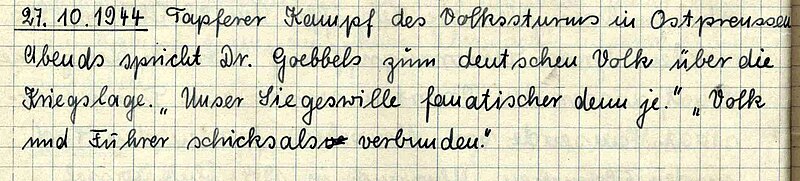 27.10.1944 Tapferer Kampf des Volkssturms in Ostpreussen
Abends spricht Dr. Goebbels zum deutschen Volk über die
Kriegslage. „Unser Siegeswille fanatischer denn je.“ „Volk
und Führer schicksals verbunden.“